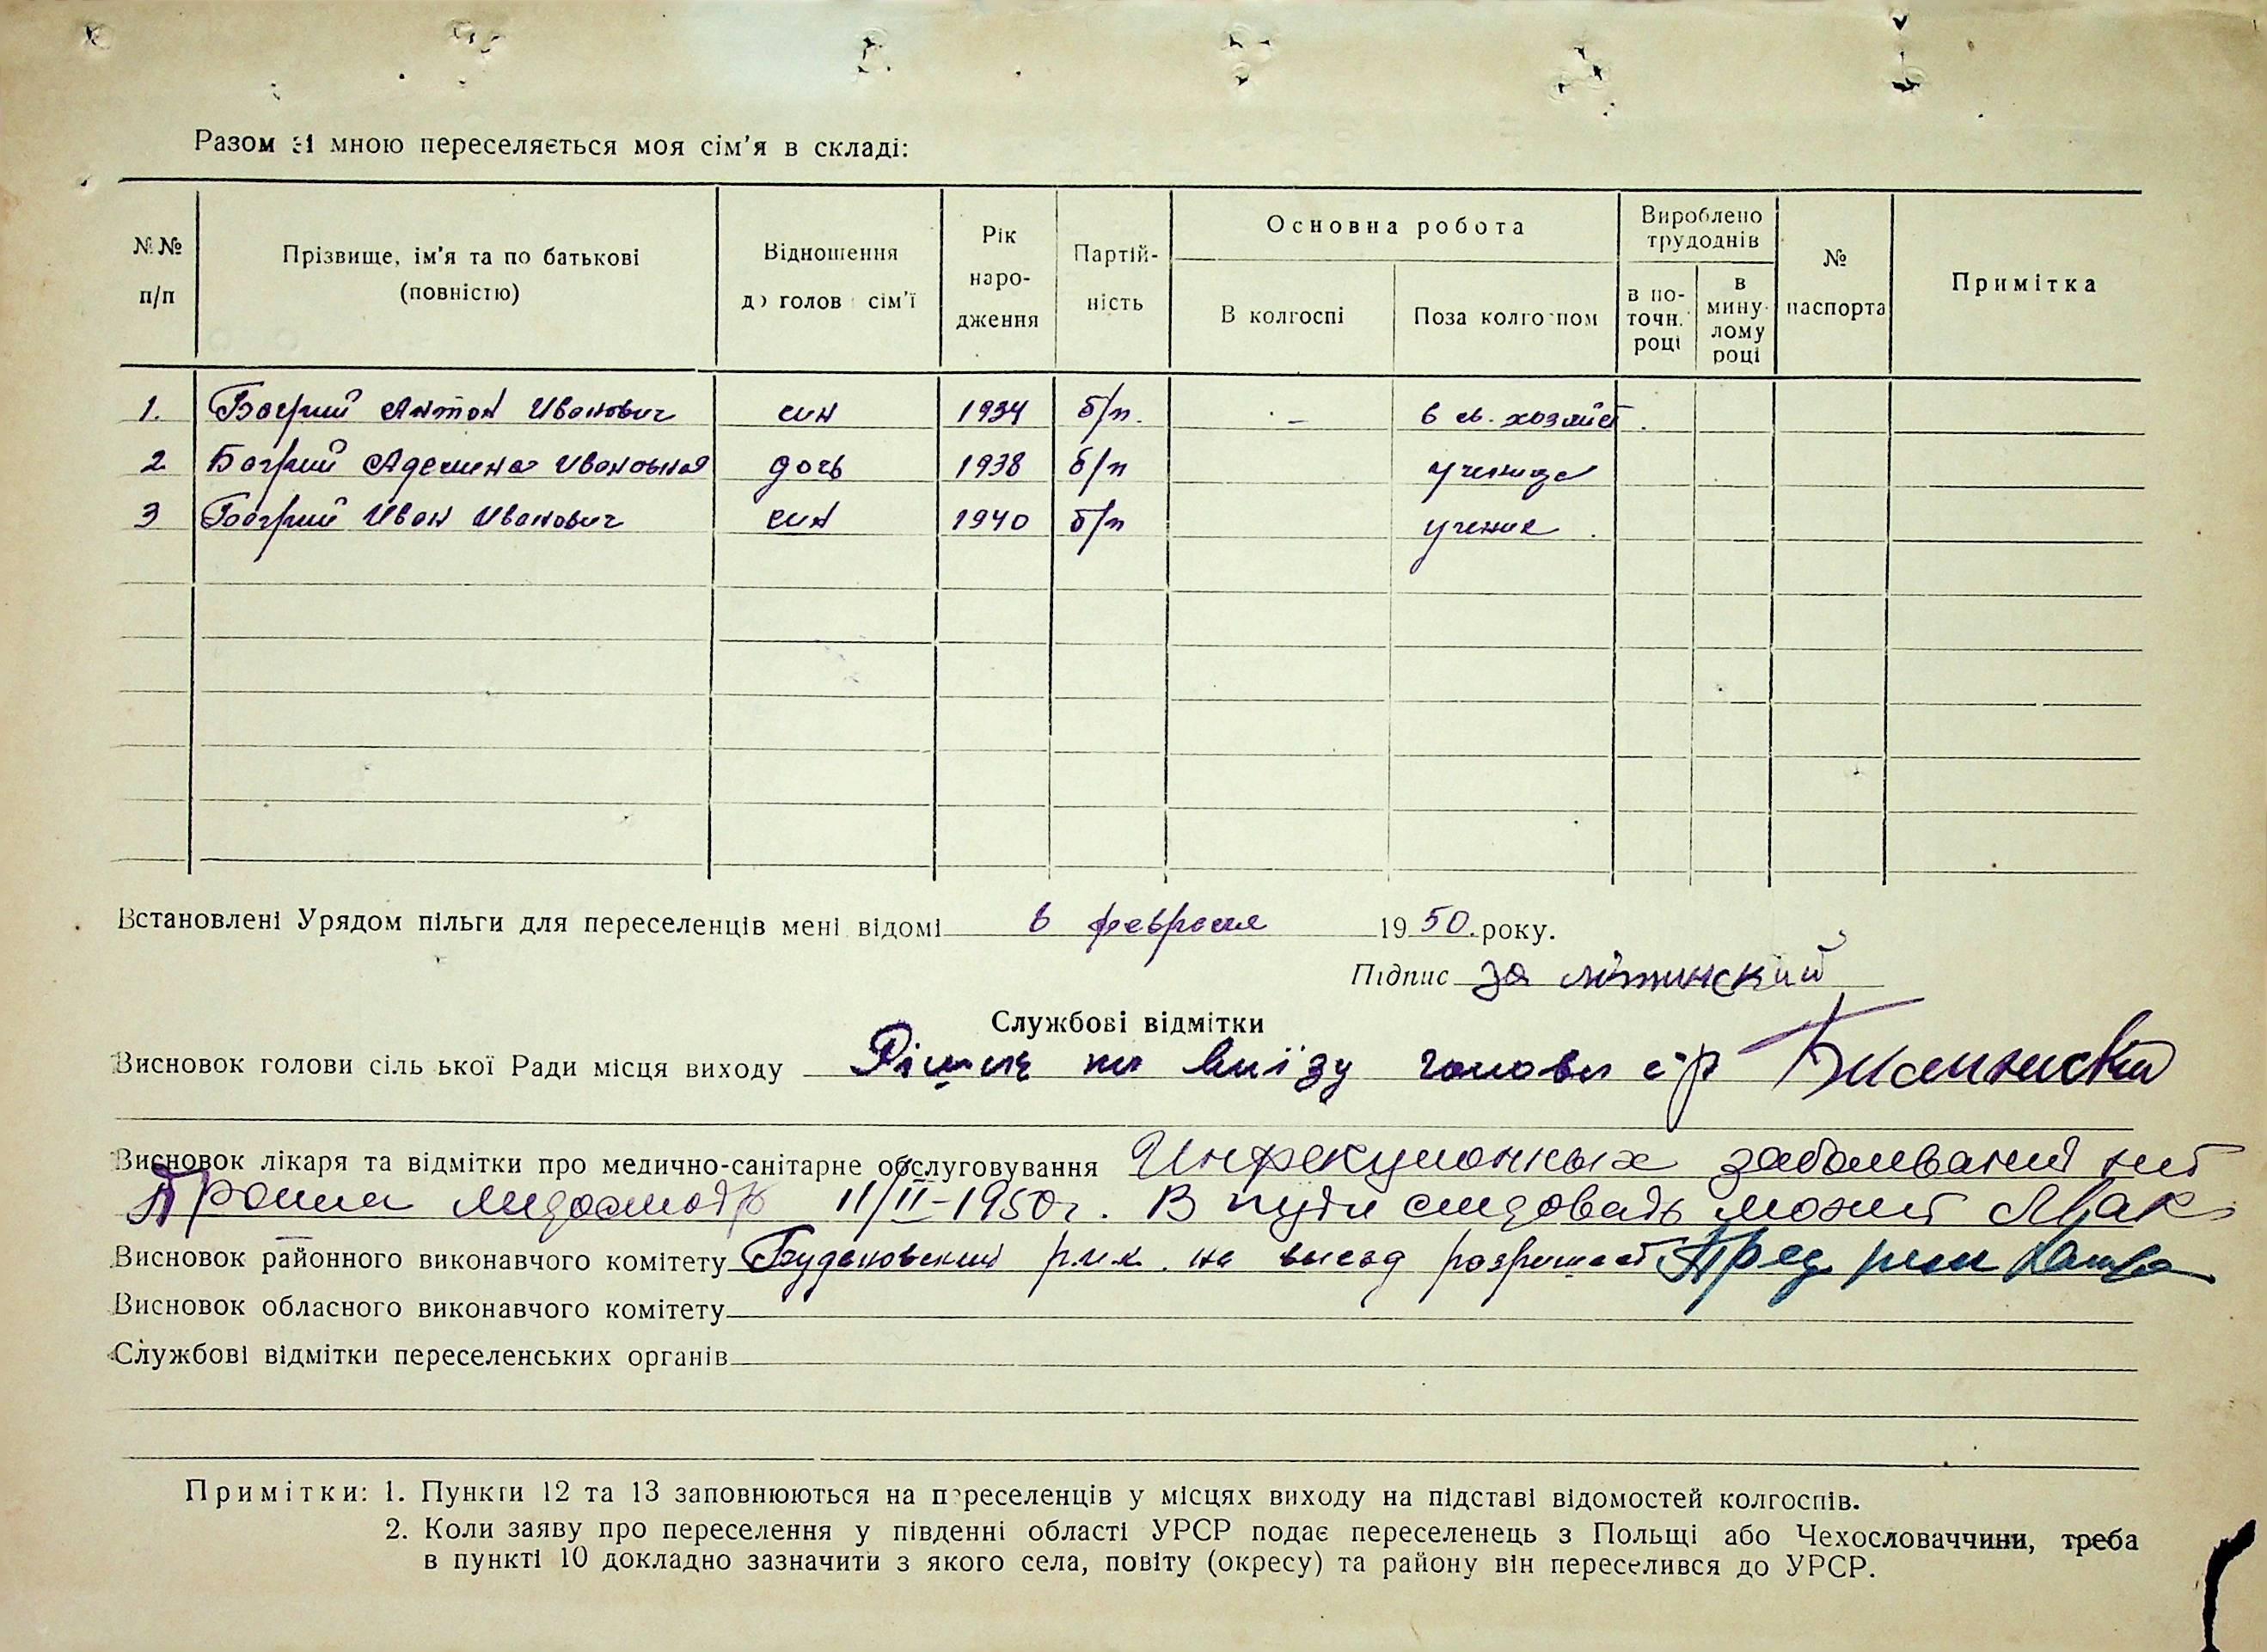 Разом зі мною переселяється моя сім’я в складі:
№№ п/п
Прізвище, ім’я та по батькові (повністю)
Відношення до голов сім’ї
Рік народження
Партійність
Основна робота
В колгоспі
Поза колгоспом
Вироблено трудоднів
в поточн. році
в минулому році
№ паспорта
Примітка
1. Багрий Антон Иванович син 1934 б/п. – в св. хозяйст.
2 Багрий Аделина Ивановна дочь 1938 б/п ученица
3 Багрий Иван Иванович син 1940 б/п ученик
Встановлені Урядом пільги для переселенців мені відомі 6 февраля 1950. року.
Підпис за
Службові відмітки
Висновок голови сільської Ради місця виходу виїзду голова с/р
Висновок лікаря та відмітки про медично-санітарне обслуговування Инфекционных заболеваний нет
Прошла медосмотр 11/II-1950г. В пути следовать может
Висновок районного виконавчого комітету Буденовский рик. на выезд разрешает Пред рик
Висновок обласного виконавчого комітету
Службові відмітки переселенських органів
Примітки: 1. Пункти 12 та 13 заповнюються на переселенців у місцях виходу на підставі відомостей колгоспів.
2. Коли заяву про переселення у південні області УРСР подає переселенець з Польщі або Чехословаччини, треба
в пункті 10 докладно зазначити з якого села, повіту (окресу) та району він переселився до УРСР.